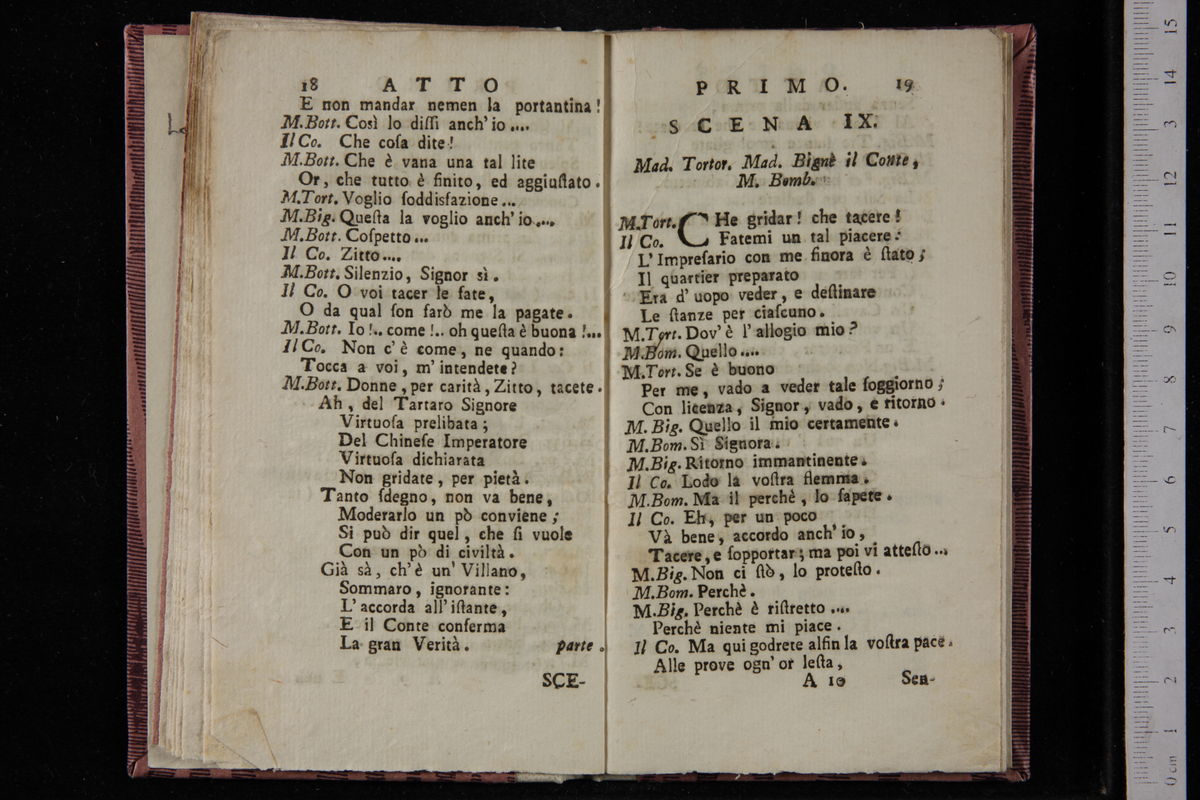 18 ATTO
E non mandar nemen la portantina!
M.Bott. Così lo diſſi anch'io ....
Il Co. Che coſa dite!
M.Bott. Che è vana una tal lite
Or, che tutto è finito, ed aggiuſtato.
M.Tort. Voglio ſoddisfazione...
M.Big. Queſta la voglio anch'io....
M.Bott. Coſpetto...
Il Co. Zitto....
M.Bott. Silenzio, Signor sì.
Il Co. O voi tacer le fate,
O da qual ſon farò me la pagate.
M.Bott. Io!.. come!.. oh queſta è buona!...
Il Co. Non c'è come, ne quando:
Tocca a voi, m'intendete?
M.Bott. Donne, per carità, Zitto, tacete.
Ah, del Tartaro Signore
Virtuoſa prelibata;
Del Chineſe Imperatore
Virtuoſa dichiarata
Non gridate, per pietà.
Tanto ſdegno, non va bene,
Moderarlo un pò conviene;
Si può dir quel, che ſi vuole
Con un pò di civiltà.
Già sà, ch'è un' Villano,
Sommaro, ignorante:
L'accorda all'iſtante,
E il Conte conferma
La gran Verità. parte.
SCE-
PRIMO. 19
SCENA IX.
Mad. Tortor. Mad. Bignè il Conte,
M. Bomb.
M.Tort. CHe gridar! che tacere!
Il Co. Fatemi un tal piacere:
L'Impreſario con me finora è ſtato;
Il quartier preparato
Era d'uopo veder, e deſtinare
Le ſtanze per ciaſcuno.
M.Tort. Dov'è l'allogio mio?
M.Bom. Quello....
M.Tort. Se è buono
Per me, vado a veder tale ſoggiorno;
Con licenza, Signor, vado, e ritorno.
M. Big. Quello il mio certamente.
M.Bom. Sì Signora.
M.Big. Ritorno immantinente.
Il Co. Lodo la voſtra flemma.
M.Bom. Ma il perchè, lo ſapete.
Il Co. Eh, per un poco
Và bene, accordo anch'io,
Tacere, e ſopportar; ma poi vi atteſto...
M.Big. Non ci ſtò, lo proteſto.
M.Bom. Perchè.
M.Big. Perchè è riſtretto ....
Perchè niente mi piace.
Il Co. Ma qui godrete alfin la voſtra pace.
Alle prove ogn'or leſta,
A 10 Sen-